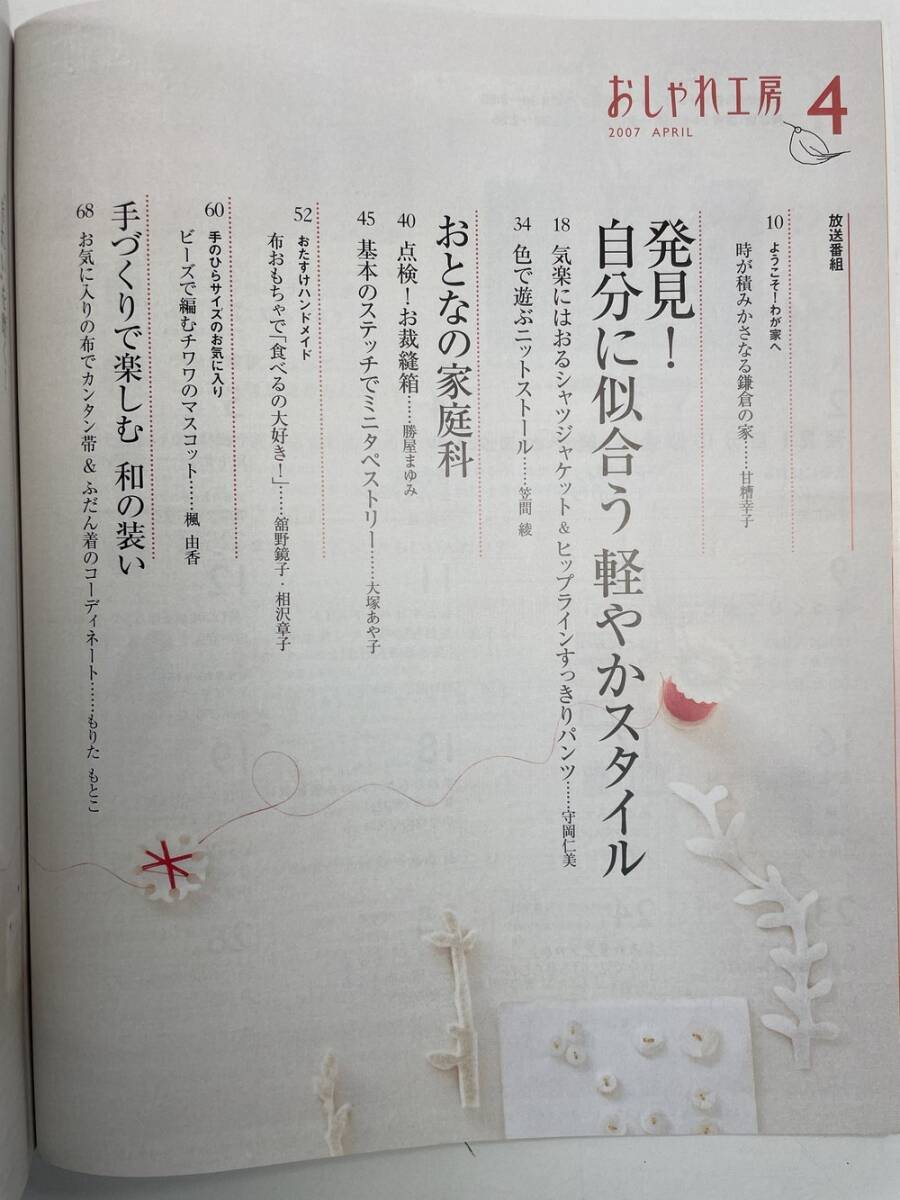 おしゃれ工房 4
2007 APRIL
放送番組
10 ようこそ!わが家へ
時が積みかさなる鎌倉の家……甘糟幸子
発見!
自分に似合う 軽やかスタイル
18 気楽にはおるシャツジャケット&ヒップラインすっきりパンツ……守岡仁美
34 色で遊ぶニットストール……笠間 綾
おとなの家庭科
40 点検!お裁縫箱……勝屋まゆみ
45 基本のステッチでミニタペストリー……大塚あや子
52 おたすけハンドメイド
布おもちゃで「食べるの大好き!」……舘野鏡子・相沢章子
60 手のひらサイズのお気に入り
ビーズで編むチワワのマスコット……楓 由香
手づくりで楽しむ 和の装い
68 お気に入りの布でカンタン帯&ふだん着のコーディネート……もりた もとこ